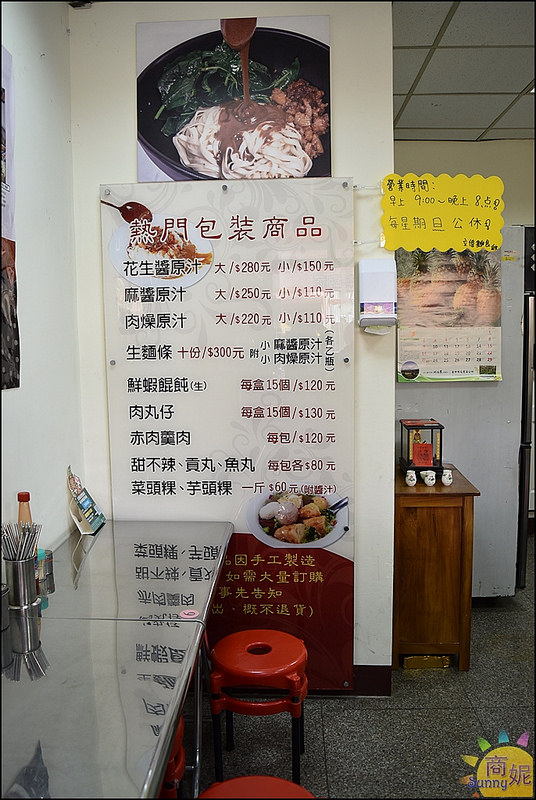 熱門包裝商品
花生醬原汁 大/$280元 小/$150元
麻醬原汁 大/$250元 小/$110元
肉燥原汁 大/$220元 小/$110元
生麵條 十份/$300元 附 小 麻醬原汁 小 肉燥原汁 (各乙瓶)
鮮蝦餛飩(生) 每盒15個/$120元
肉丸仔 每盒15個/$130元
赤肉羹肉 每包/$120元
甜不辣、貢丸、魚丸 每包各$80元
菜頭粿、芋頭粿 一斤$60元(附醬汁)
品因手工製造
如需大量訂購
事先告知
出、概不退貨)
營業時間:
早上9:00~晚上8點
每星期日公休
商妮
sunny